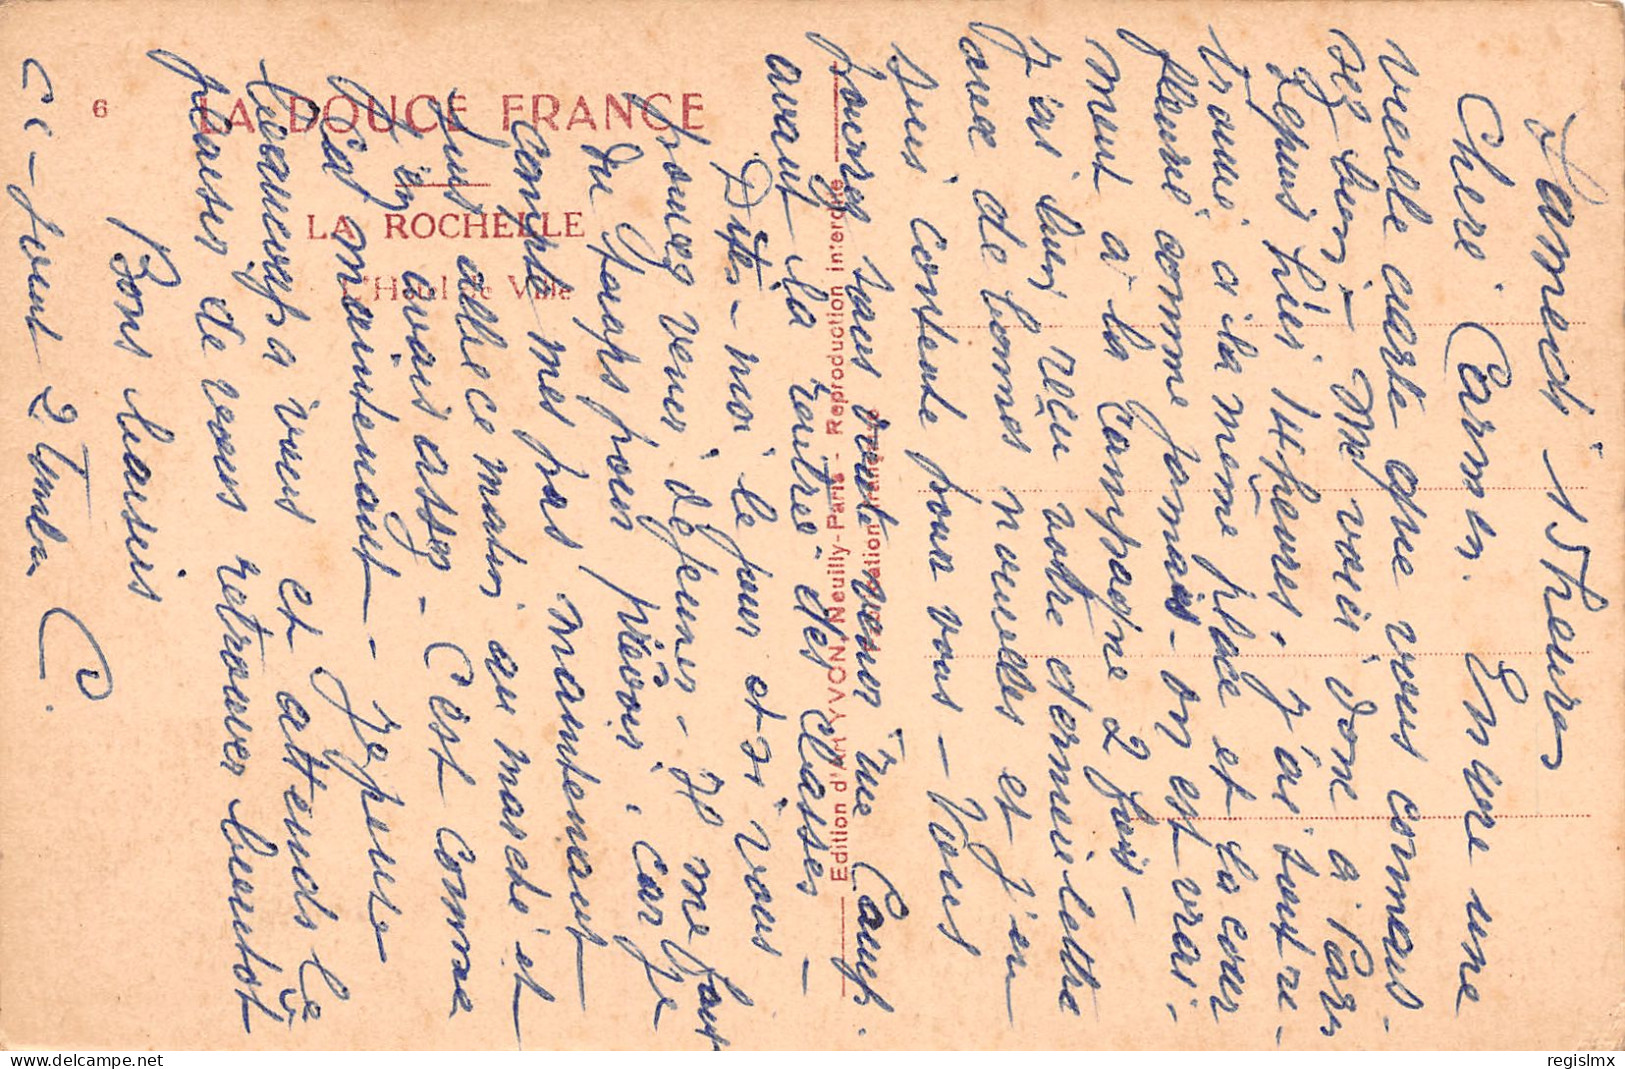 6
LA DOUCE FRANCE
LA ROCHELLE
L'Hôtel de Ville
Edition d'Art YVON, Neuilly-Paris - Reproduction interdite
Fabrication française
Samedi 15 heures
Chère Carmen. Encore une
vieille carte que vous connais-
sez bien - Me voici donc à Paris
depuis hier 14 heures. J'ai tout re-
trouvé à la même place et la cour
fleurie comme jamais - on est vrai-
ment à la campagne 2 fois -
J'ai bien reçu votre dernière lettre
avec de bonnes nouvelles et j'en
suis contente pour vous - Vous
pourrez sans doute venir à
avant la rentrée des classes -
Dites-moi le jour et si vous
pouvez venir déjeuner - Il me faut
du temps pour prévoir. Car je
compte mes pas maintenant
suis allée ce matin au marché et
j'en avais assez - C'est comme
ça maintenant - Je pense
beaucoup à vous et attends le
plaisir de vous retrouver bientôt
Bons baisers
C.
ci-joint 2 timbres
regislmx